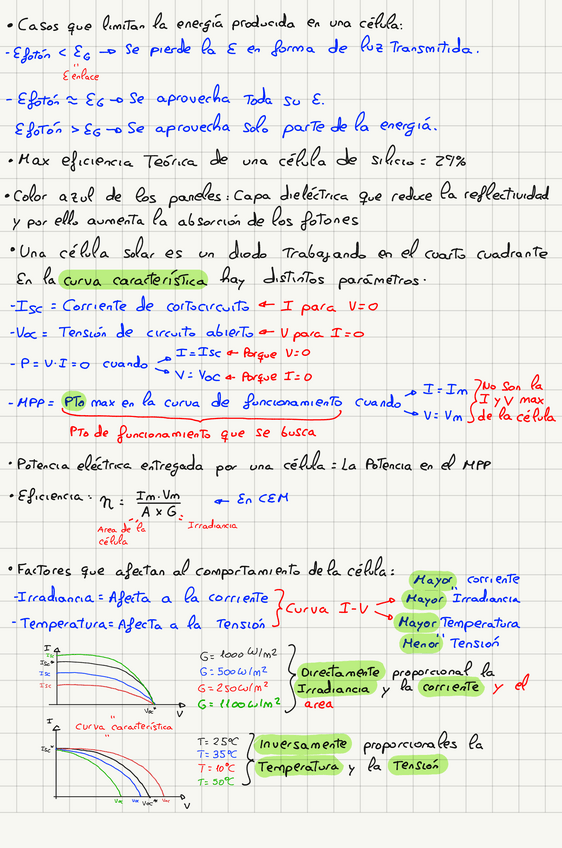 • Casos que limitan la energía producida en una célula:
- Efotón < EG → Se pierde la E en forma de luz Transmitida.
"
E enlace
- Efotón ≈ EG → Se aprovecha Toda su E.
Efotón > EG → Se aprovecha solo parte de la energía.
• Max eficiencia Teórica de una célula de silicio = 29%
• Color azul de los paneles: Capa dieléctrica que reduce la reflectividad
y por ello aumenta la absorción de los fotones
• Una célula solar es un diodo Trabajando en el cuarto cuadrante
En la curva característica hay distintos parámetros.
- Isc = Corriente de cortocircuito ← I para V=0
- Voc = Tensión de circuito abierto ← V para I=0
- P = V·I = 0 cuando → I = Isc ← Porque V=0
→ V = Voc ← Porque I=0
- MPP = PTo max en la curva de funcionamiento cuando → I = Im
→ V = Vm
No son la
I y V max
de la célula
PTo de funcionamiento que se busca
• Potencia eléctrica entregada por una célula = La Potencia en el MPP
• Eficiencia: η = Im·Vm / A x G ← En CEM
Area de la
célula
Irradiancia
• Factores que afectan al comportamiento de la célula:
- Irradiancia = Afecta a la corriente
- Temperatura = Afecta a la Tensión
Curva I-V
Mayor corriente
"
Mayor Irradiancia
Mayor Temperatura
"
Menor Tensión
I
Isc
Isc*
Isc
Isc
Voc*
V
G = 1000 W/m2
G = 500 W/m2
G = 250 W/m2
G = 1100 W/m2
Directamente proporcional la
Irradiancia y la corriente y el
area
"
Curva característica
"
I
Isc*
Voc Voc Voc* Voc
V
T = 25ºC
T = 35ºC
T = 10ºC
T = 50ºC
Inversamente proporcionales la
Temperatura y la Tensión